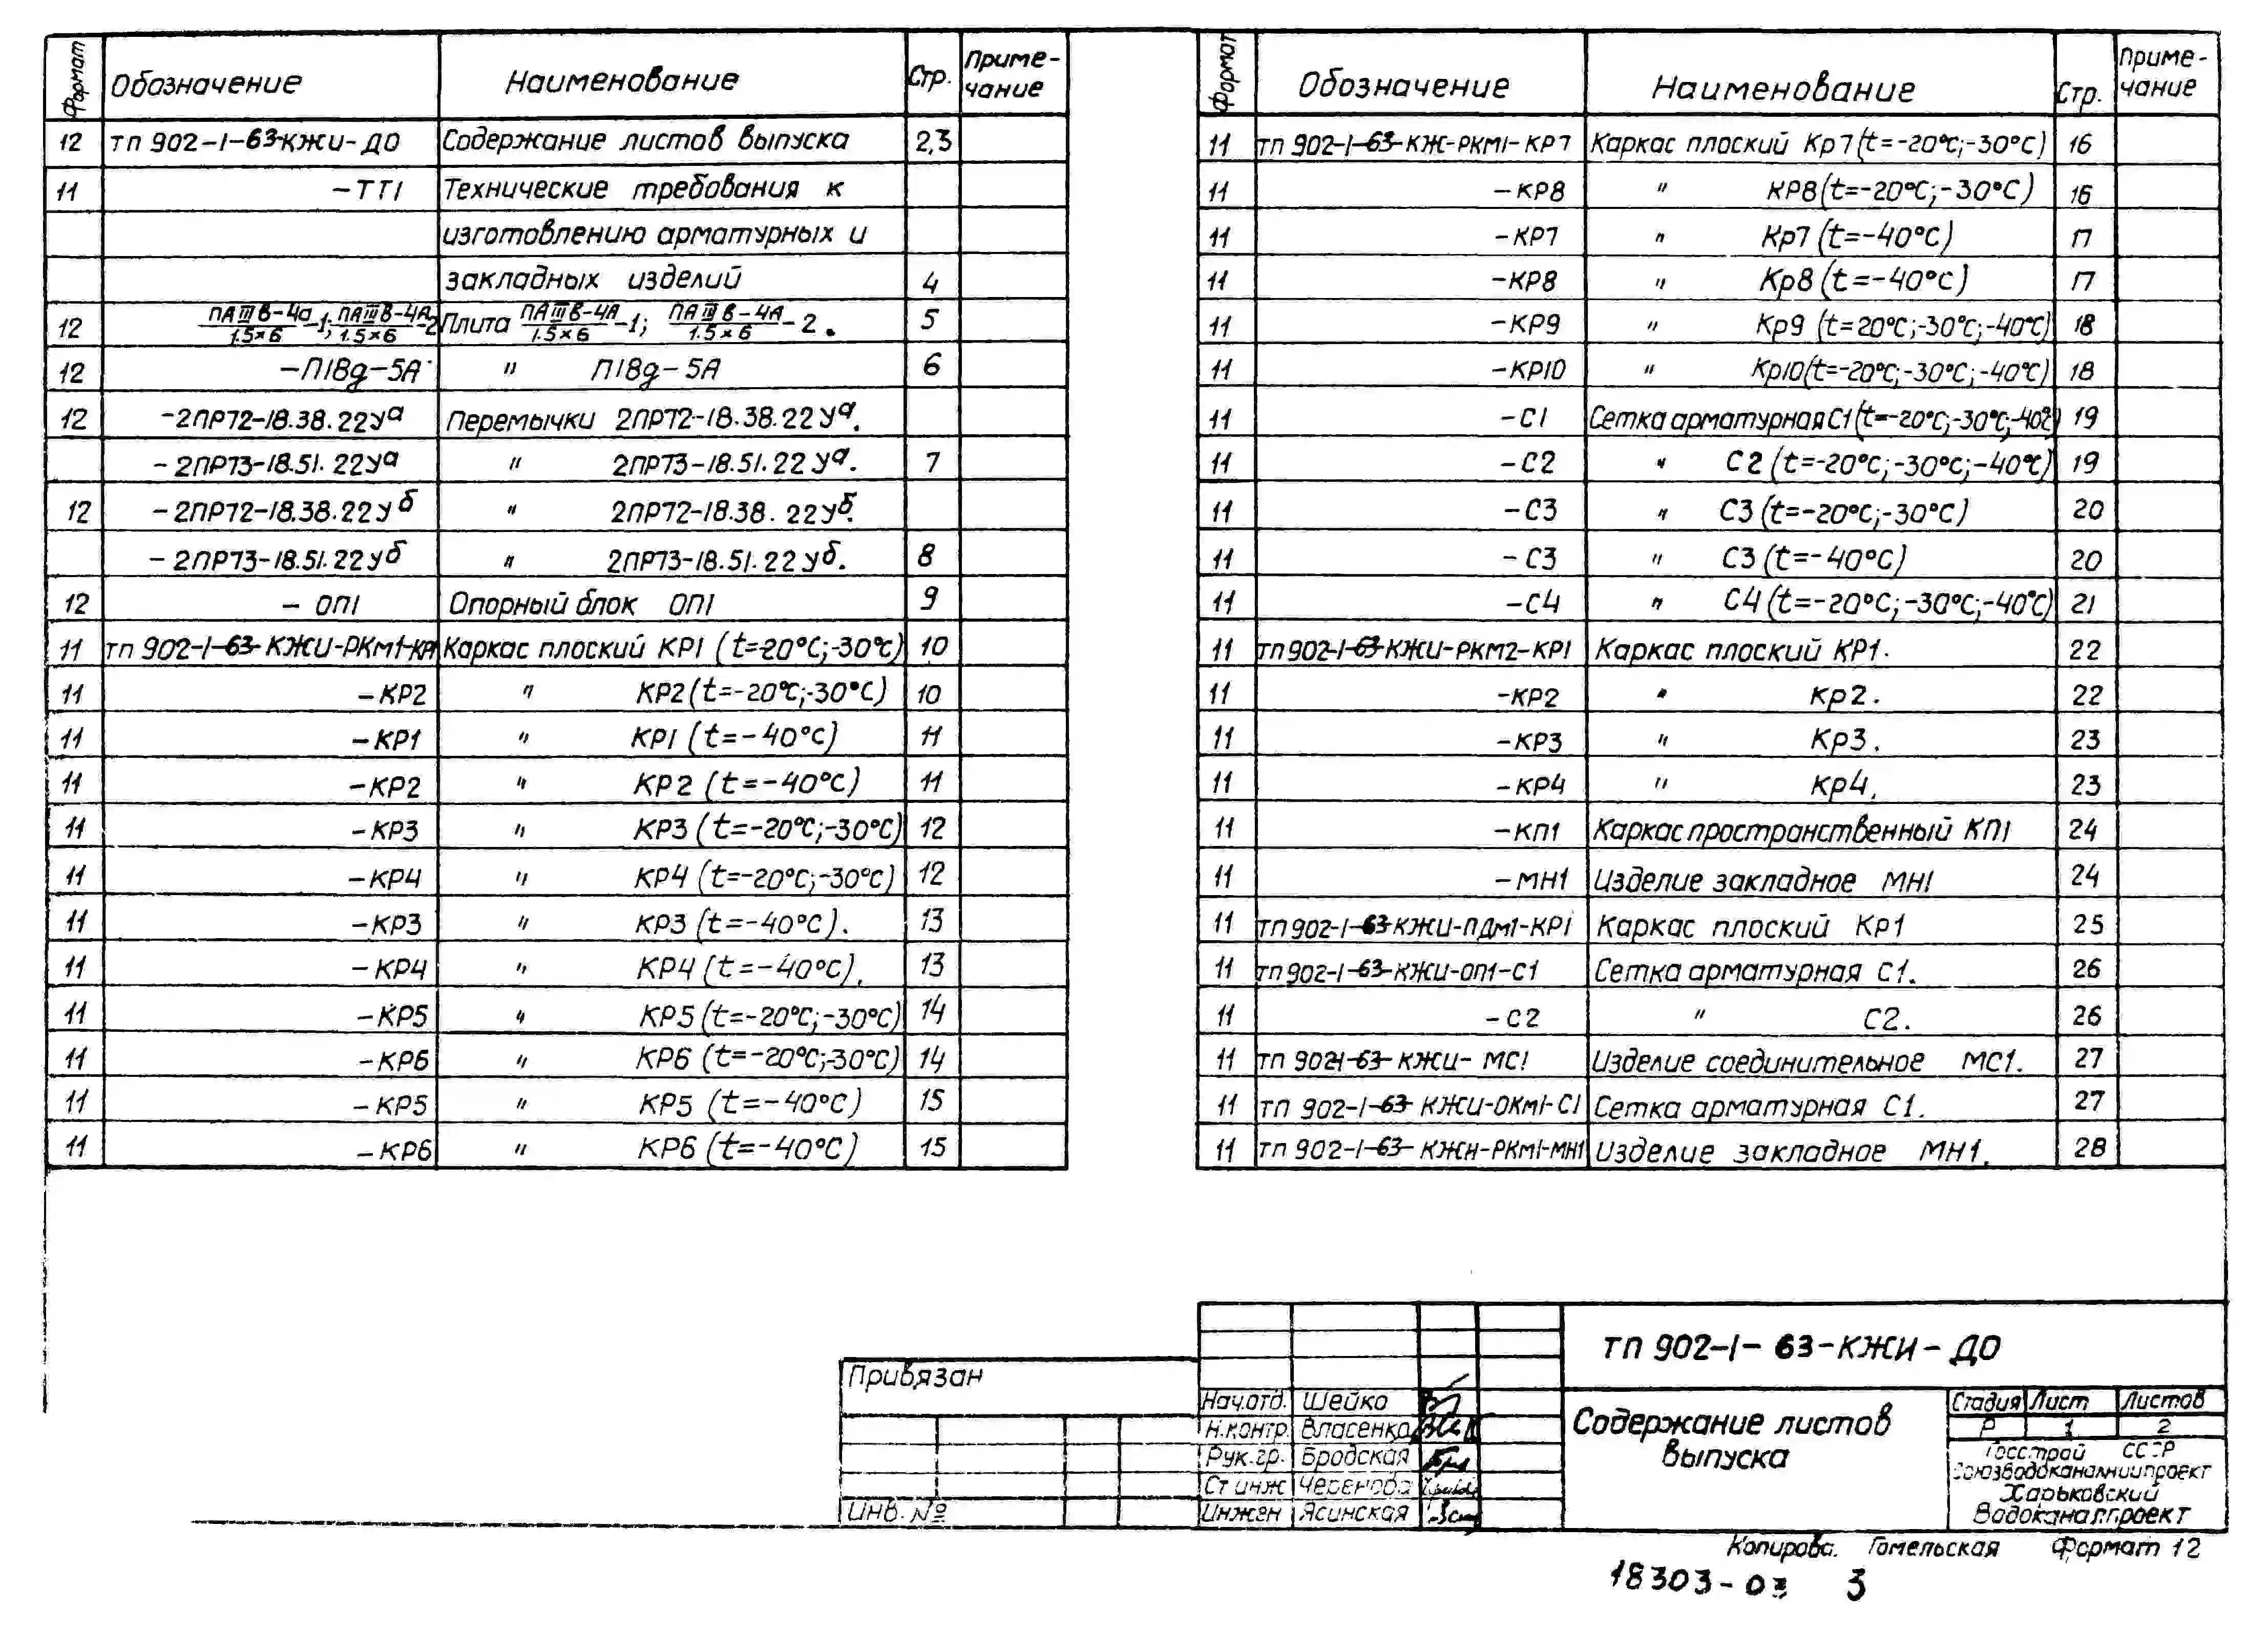 Формат Обозначение Наименование Стр. Приме-
чание
12 ТП 902-1-63-КЖИ-ДО Содержание листов выпуска 2,3
11 -ТТ1 Технические требования к
изготовлению арматурных и
закладных изделий 4
12 ПАШв-4а/1.5×6-1; ПАШв-4А/1.5×6-2 Плита ПАШв-4А/1.5×6-1; ПАШв-4А/1.5×6-2. 5
12 -П18д-5А " П18д-5А 6
12 -2ПР72-18.38.22Уа Перемычки 2ПР72-18.38.22Уа.
-2ПР73-18.51.22Уа " 2ПР73-18.51.22Уа. 7
12 -2ПР72-18.38.22Уб " 2ПР72-18.38.22Уб.
-2ПР73-18.51.22Уб " 2ПР73-18.51.22Уб. 8
12 - ОП1 Опорный блок ОП1 9
11 ТП 902-1-63-КЖИ-РКм1-КР1 Каркас плоский КР1 (t=-20°С;-30°С) 10
11 -КР2 " КР2(t=-20°С;-30°С) 10
11 -КР1 " КР1 (t=-40°С) 11
11 -КР2 " КР2 (t=-40°С) 11
11 -КР3 " КР3 (t=-20°С;-30°С) 12
11 -КР4 " КР4 (t=-20°С;-30°С) 12
11 -КР3 " КР3 (t=-40°С). 13
11 -КР4 " КР4 (t=-40°С). 13
11 -КР5 " КР5 (t=-20°С;-30°С) 14
11 -КР6 " КР6 (t=-20°С;-30°С) 14
11 -КР5 " КР5 (t=-40°С) 15
11 -КР6 " КР6 (t=-40°С) 15
Формат Обозначение Наименование Стр. Приме-
чание
11 ТП 902-1-63-КЖ-РКМ1-КР7 Каркас плоский Кр7(t=-20°С;-30°С) 16
11 -КР8 " КР8(t=-20°С;-30°С) 16
11 -КР7 " Кр7 (t=-40°С) 17
11 -КР8 " Кр8 (t=-40°С) 17
11 -КР9 " Кр9 (t=20°С;-30°С;-40°С) 18
11 -КР10 " Кр10(t=-20°С;-30°С;-40°С) 18
11 -С1 Сетка арматурная С1(t=-20°С;-30°С;-40°С) 19
11 -С2 " С2 (t=-20°С;-30°С;-40°С) 19
11 -С3 " С3 (t=-20°С;-30°С) 20
11 -С3 " С3 (t=-40°С) 20
11 -С4 " С4 (t=-20°С;-30°С;-40°С) 21
11 ТП 902-1-63-КЖИ-РКМ2-КР1 Каркас плоский КР1. 22
11 -КР2 " Кр2. 22
11 -КР3 " Кр3. 23
11 -КР4 " Кр4. 23
11 -КП1 Каркас пространственный КП1 24
11 -МН1 Изделие закладное МН1 24
11 ТП 902-1-63-КЖИ-ПДм1-КР1 Каркас плоский Кр1 25
11 ТП 902-1-63-КЖИ-ОП1-С1 Сетка арматурная С1. 26
11 -С2 " С2. 26
11 ТП 902-1-63-КЖИ-МС1 Изделие соединительное МС1. 27
11 ТП 902-1-63-КЖИ-ОКм1-С1 Сетка арматурная С1. 27
11 ТП 902-1-63-КЖИ-РКм1-МН1 Изделие закладное МН1. 28
Привязан
Инв. №
ТП 902-1-63-КЖИ-ДО
Нач.отд. Шейко
Н.контр. Власенко
Рук.гр. Бродская
Ст инж
Инжен Ясинская
Содержание листов
выпуска
Стадия Лист Листов
Р 1 2
Госстрой СССР
Союзводоканалниипроект
Харьковский
Водоканалпроект
Копирова. Гомельская Формат 12
18303-03 3